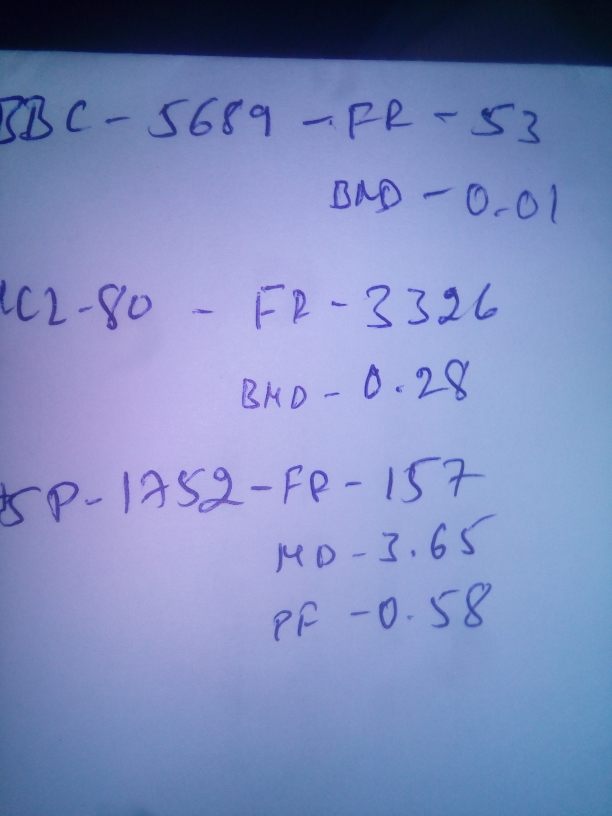 BBC - 5689 - FR - 53
BMD - 0.01
- 80 - FR - 3326
BMD - 0.28
SP - 1752 - FR - 157
MD - 3.65
PF - 0.58